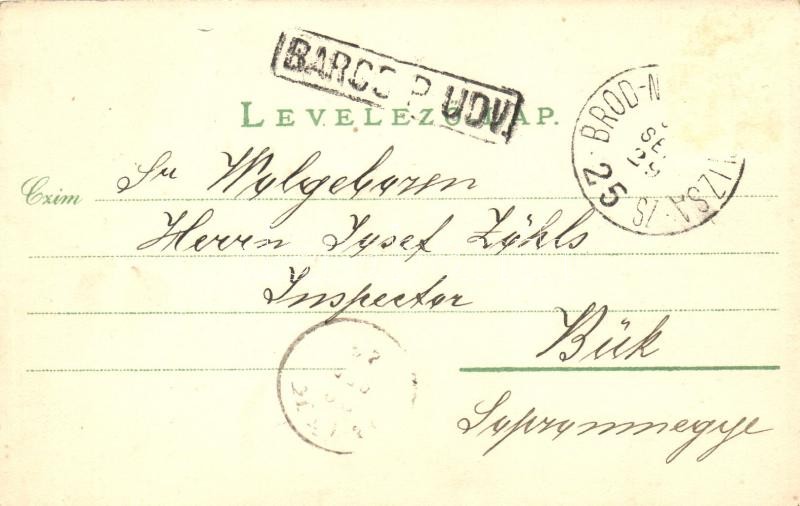 BARCS P. UDV.
LEVELEZŐ-LAP.
BROD-N IZSA·IS
SE
25
Czim
Sr Wolgeboren
Herrn Josef Zöhls
Inspector
Bük
Sopronmegye